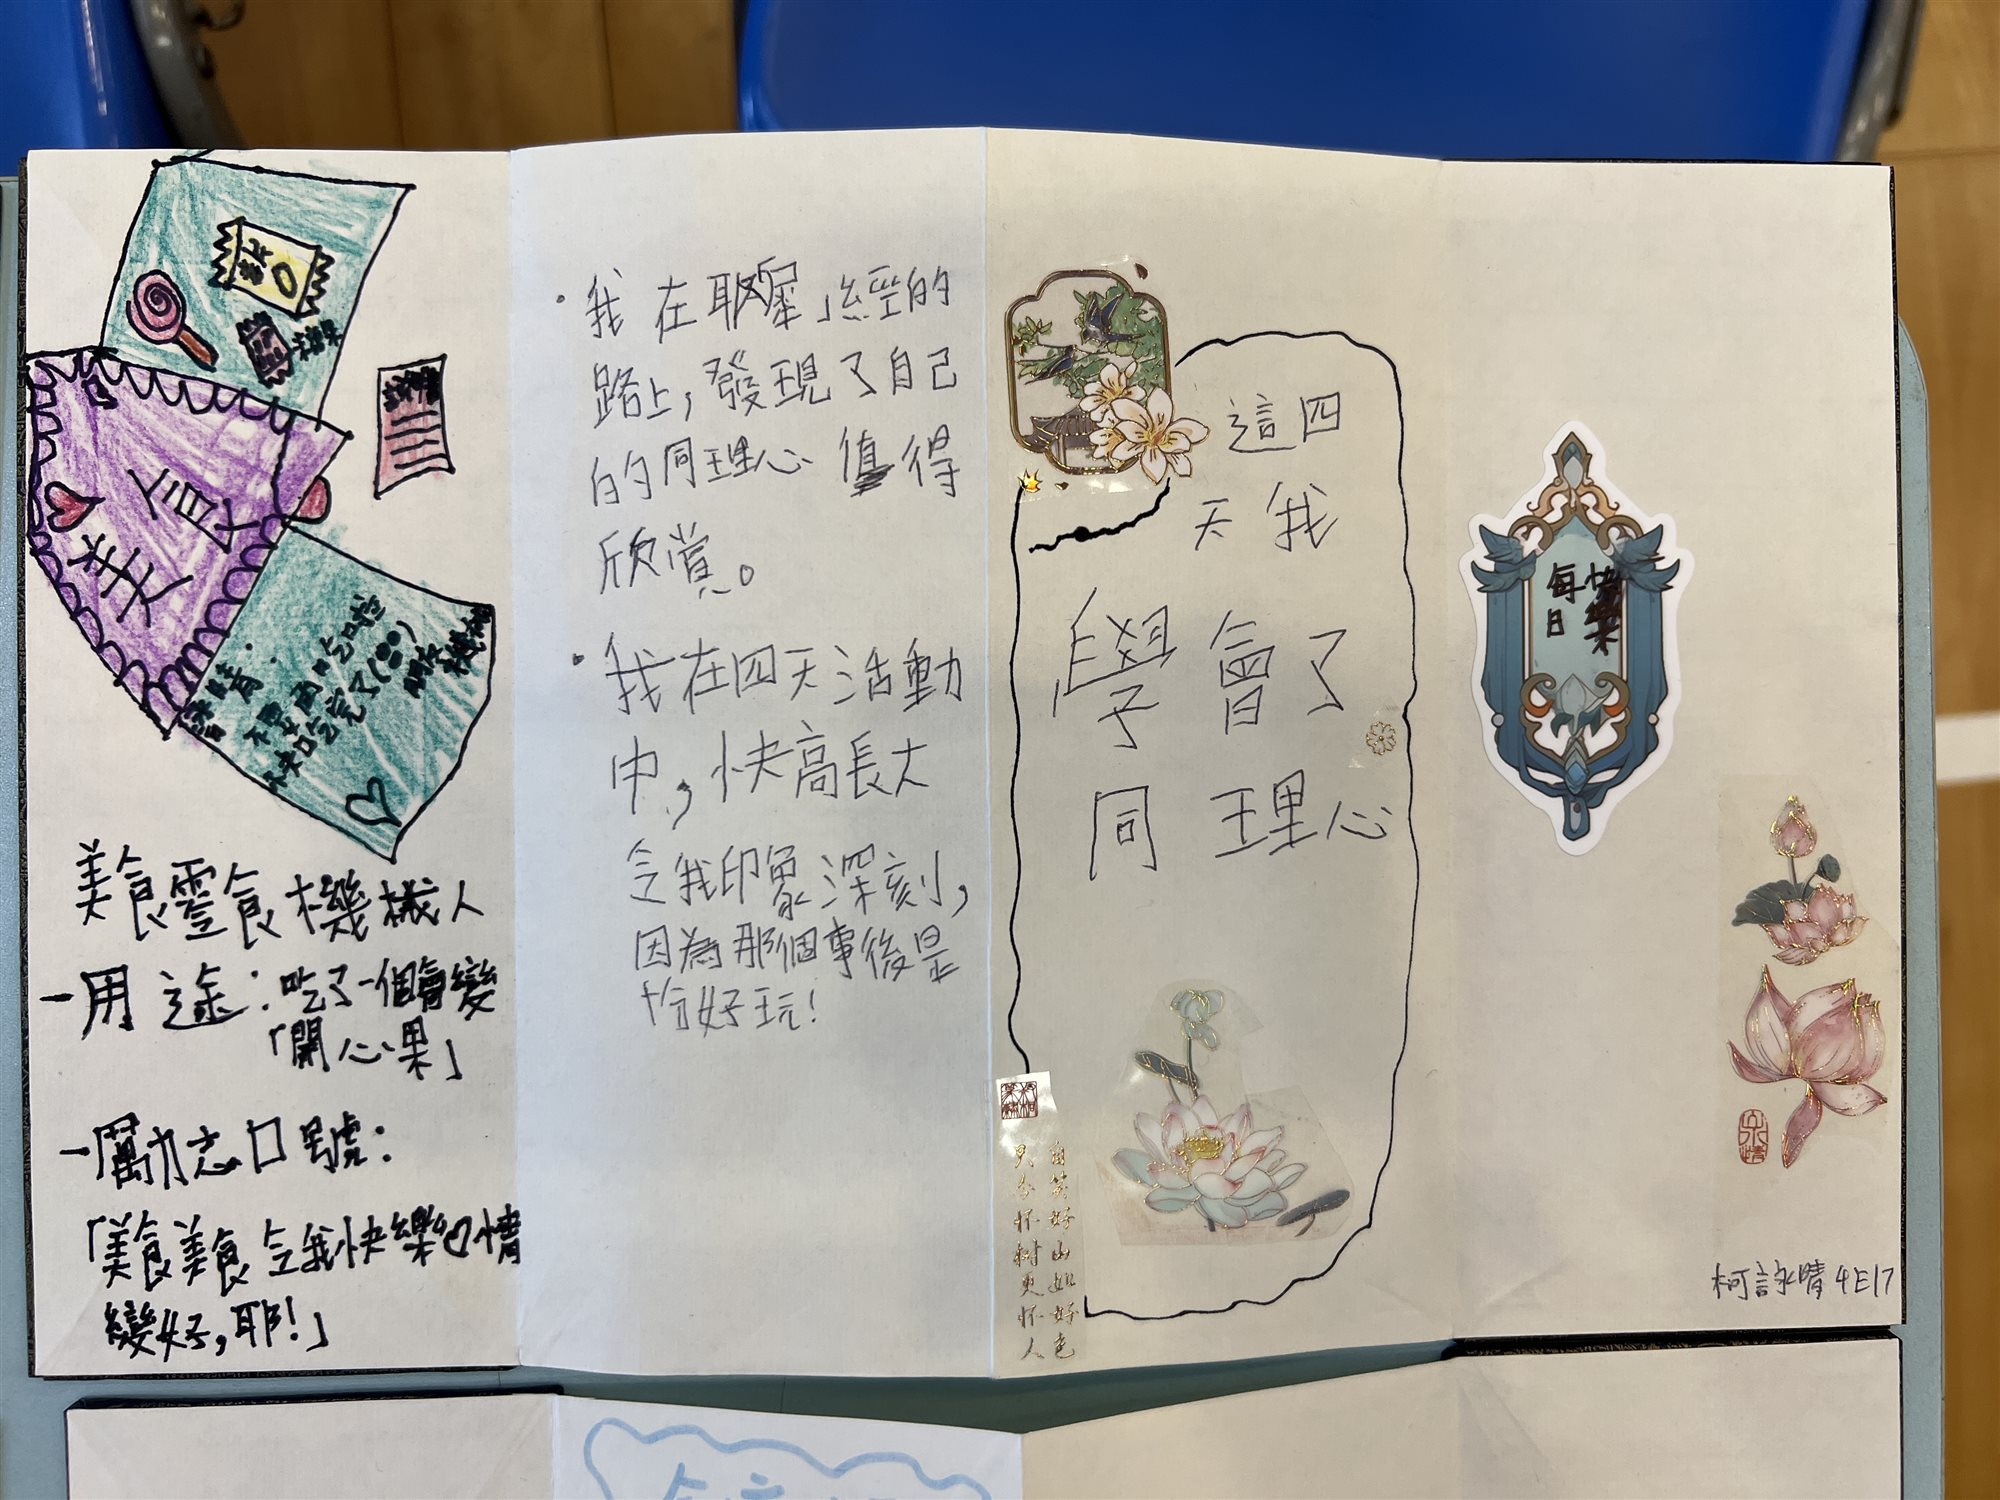 美食
美食零食機械人
-用途:吃了一個會變
「開心果」
-勵志口號:
「美食美食令我快樂心情
變好,耶!」
·我在取經的
路上,發現了自己
的同理心值得
欣賞。
·我在四天活動
中,快高長大
令我印象深刻,
因為那個事後是
恰好玩!
這四
天我
學會了
同理心
自笑好山如好色
只今怀树更怀人
每日
快樂
柯詠晴 4E17